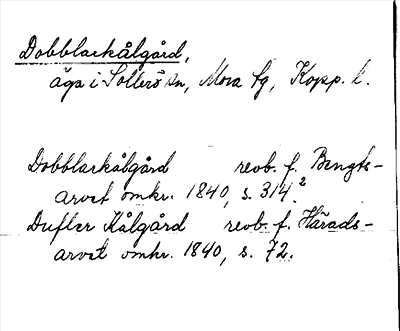 Dobblackålgård,
äga i Sollerö sn, Mora tg, Kopp. l.
Dobblarkålgård reob. f. Bengts-
arvet omkr. 1840, s. 314.²
Dufler Kålgård reob. f. Härads-
arvet omkr. 1840, s. 72.